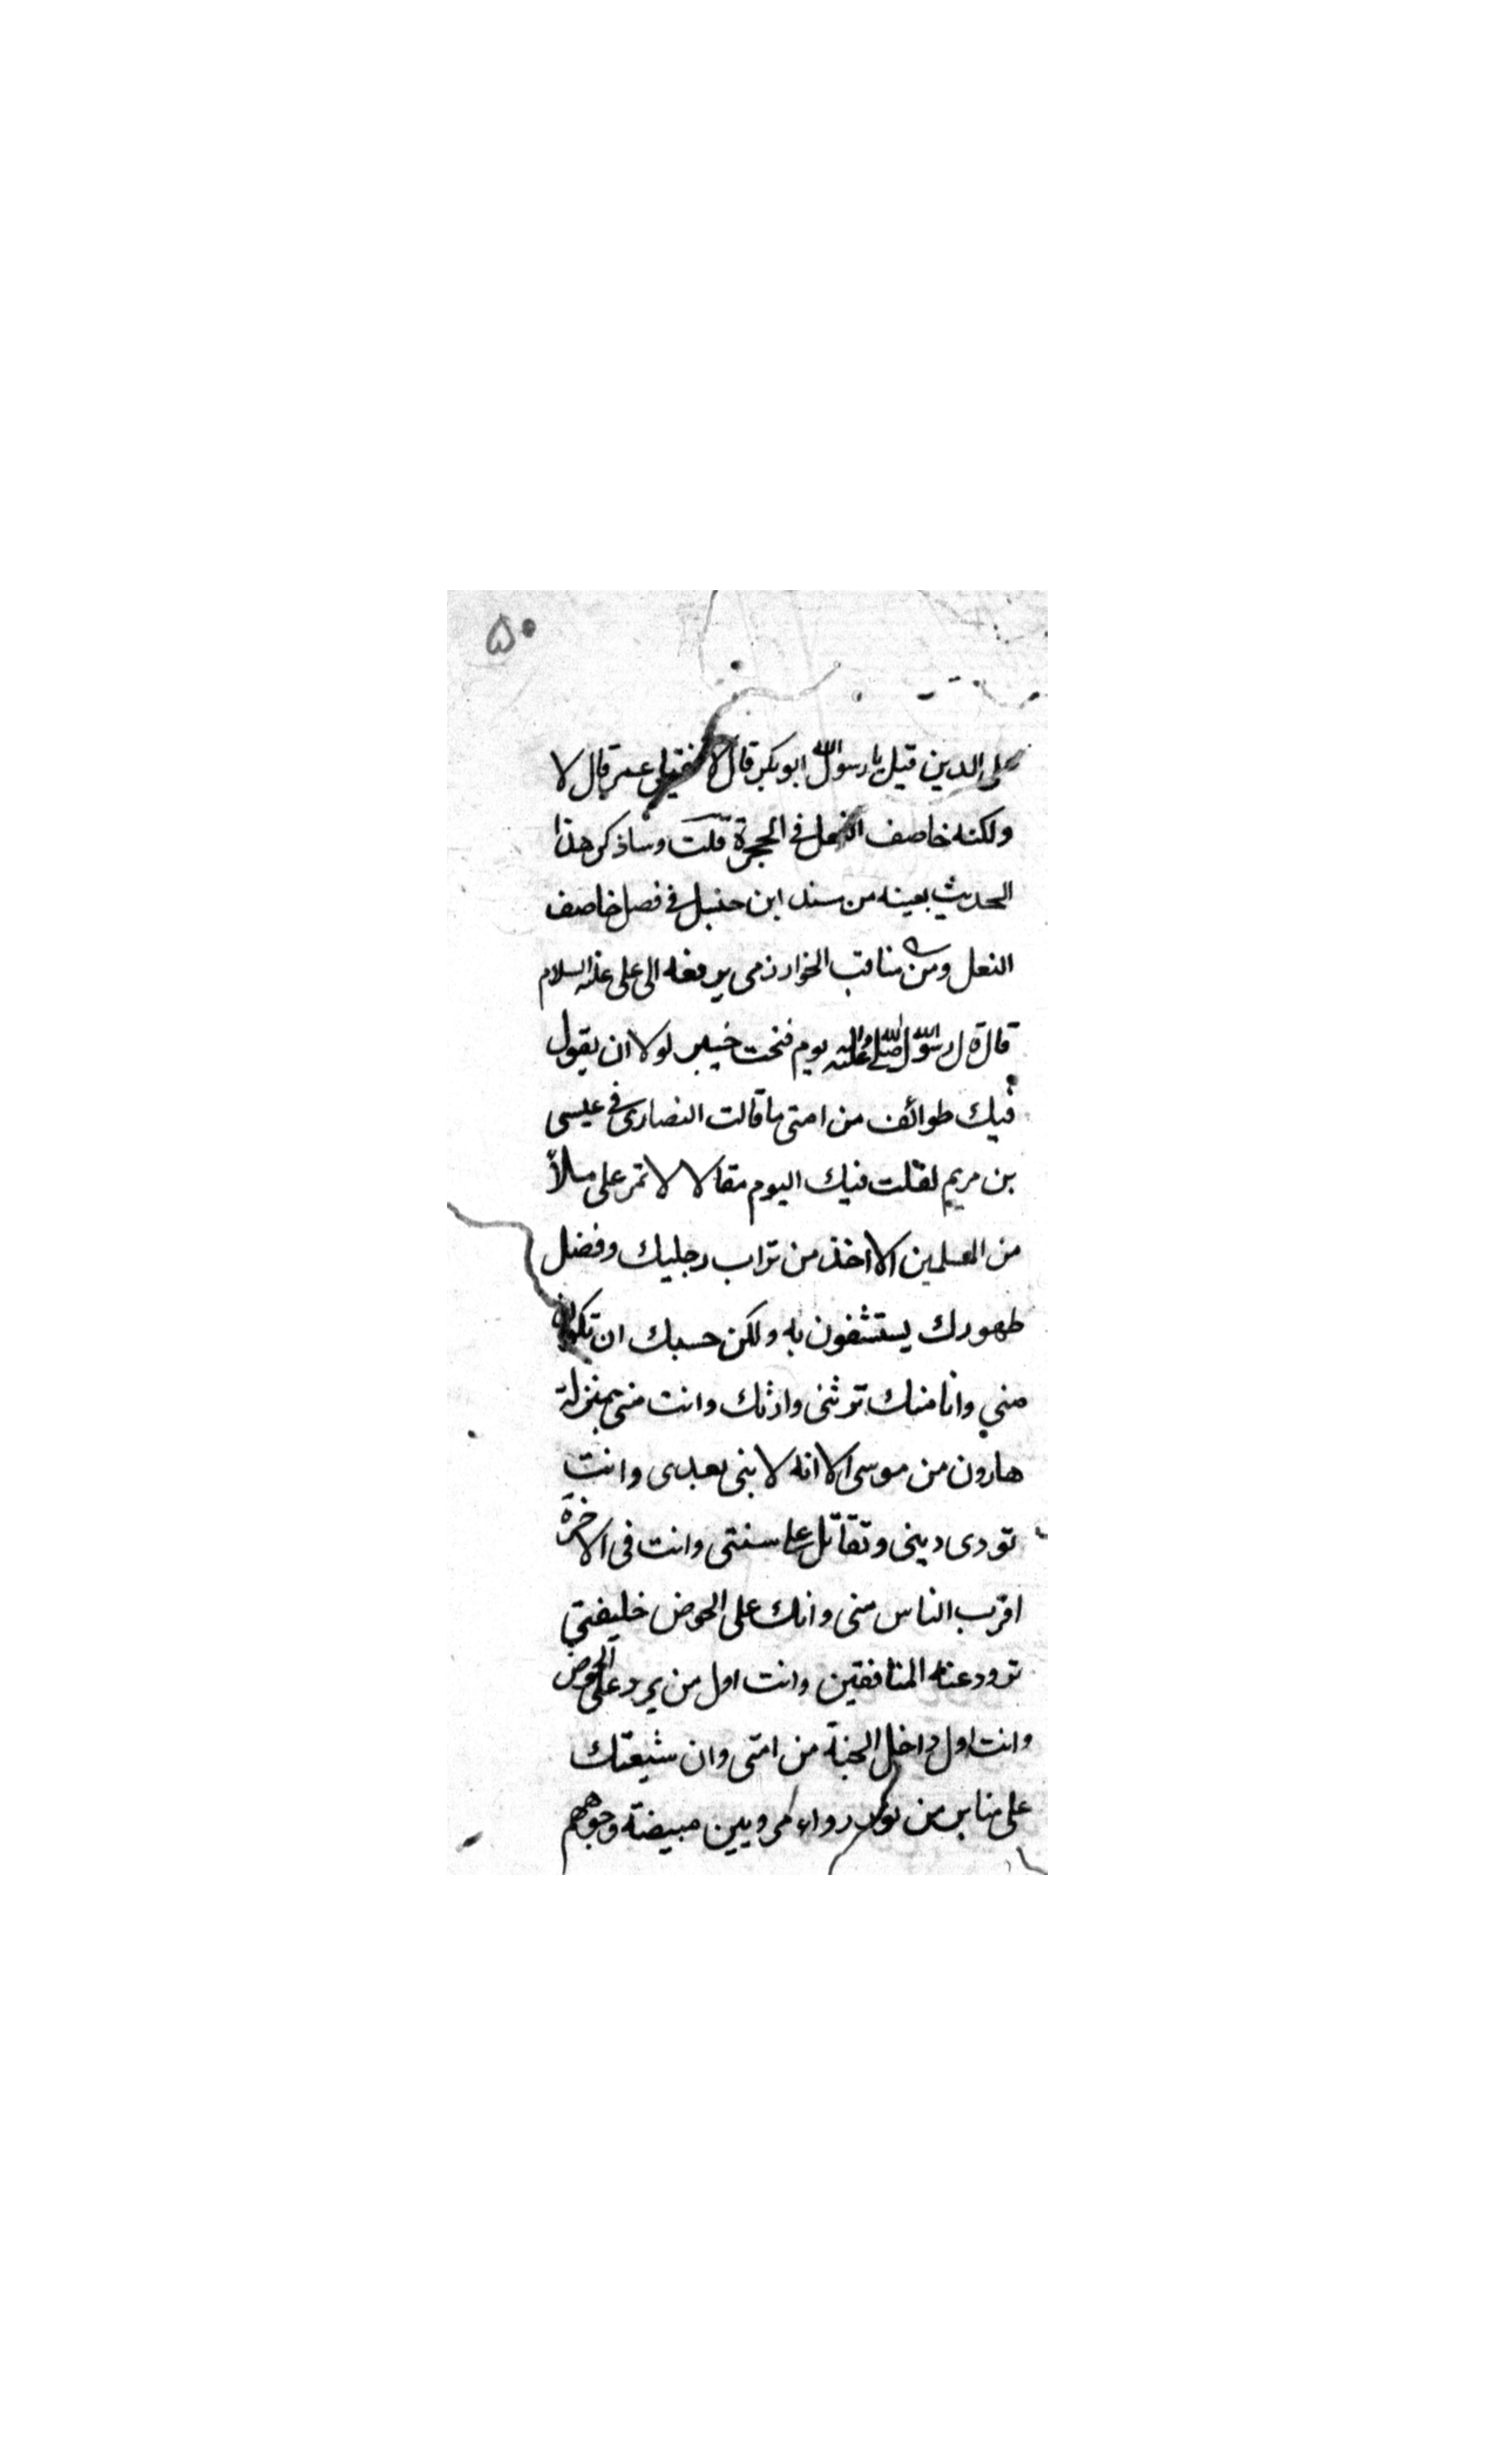 ۵۰
على الدين قيل يا رسول الله ابو بكر قال لا فقيل عمر قال لا
ولكنه خاصف النعل في الحجرة قلت وساذكر هذا
الحديث بعينه من مسند ابن حنبل في فصل خاصف
النعل ومن مناقب الخوارزمي يرفعه الى على عليه السلام
قال قال رسول الله صلى الله عليه يوم فتحت خيبر لولا ان يقول
فيك طوائف من امتى ما قالت النصارى في عيسى
بن مريم لقلت فيك اليوم مقالا لا تمر على ملأ
من المسلمين الا اخذ من تراب رجليك وفضل
طهورك يستشفون به ولكن حسبك ان تكون
مني وانا منك ترثنى وارثك وانت منى بمنزلة
هارون من موسى الا انه لا نبى بعدى وانت
تودى دينى وتقاتل على سنتى وانت فى الاخرة
اقرب الناس منى وانك على الحوض خليفتي
تزود عنه المنافقين وانت اول من يرد على الحوض
وانت اول داخل الجنة من امتى وان شيعتك
على منابر من نور رواء مرويين مبيضة وجوههم